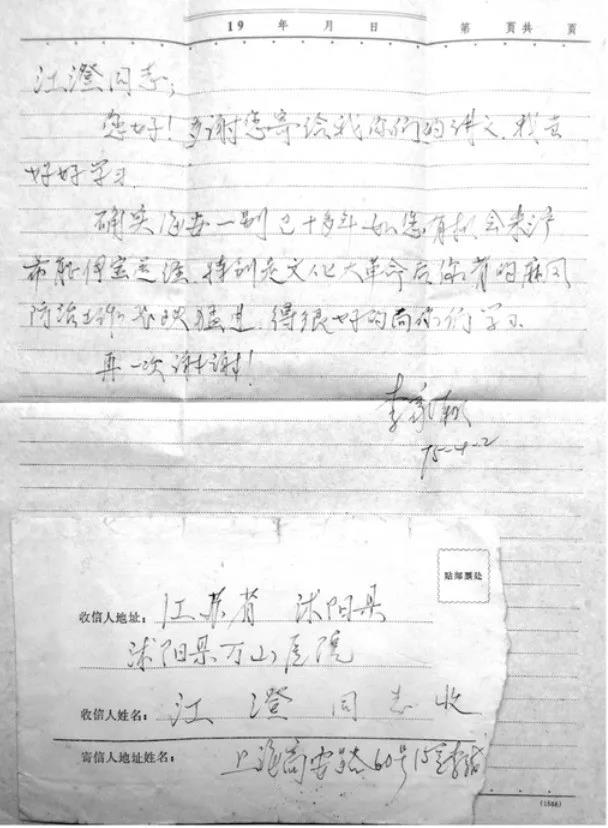 19 年 月 日 第 页共 页
江澄同志：
您好！多谢您寄给我你们的讲义，我会
好好学习。
确实 一别已十多年 如您有机会来沪
希能 特别是文化大革命后你省的麻风
防治 猛进，得很好的向你们学习。
再一次谢谢！
李家
75-4-2
贴邮票处
收信人地址：江苏省 沭阳县
沭阳县万山医院
收信人姓名：江澄同志收
寄信人地址姓名：上海 路60号15室李
(1566)